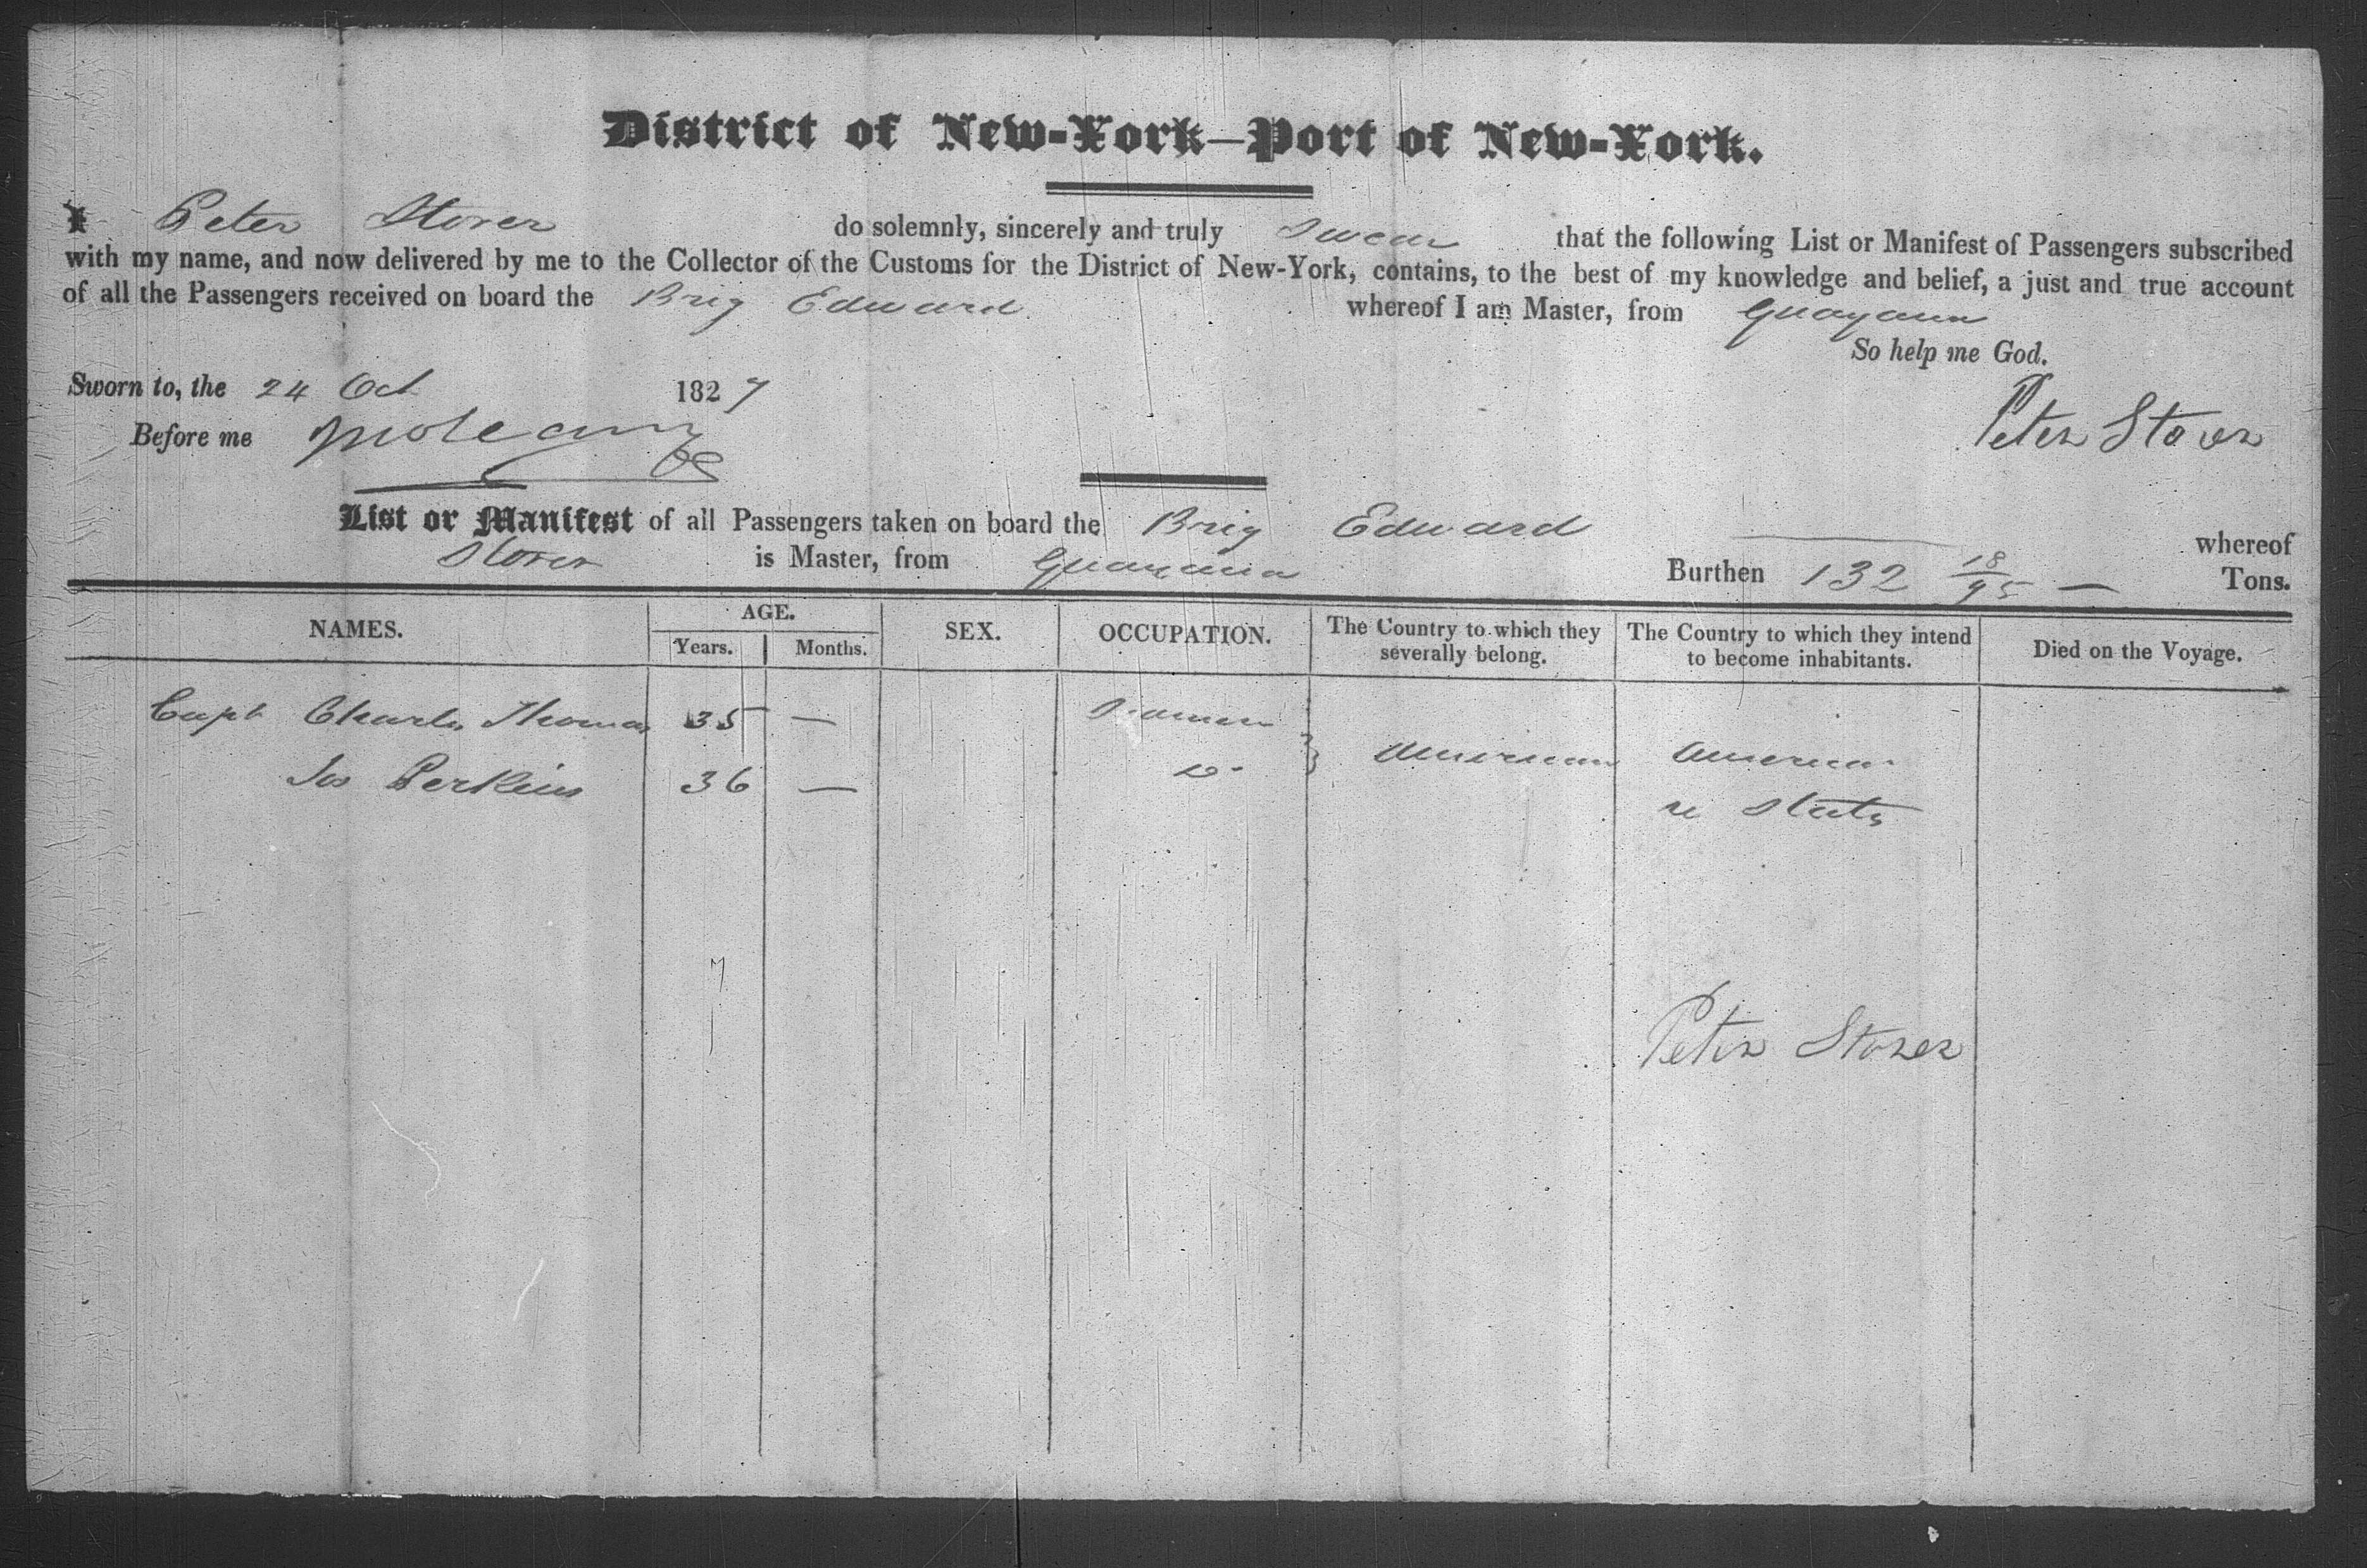 District of New-York—Port of New-York.
I Peter Storer do solemnly, sincerely and truly Swear that the following List or Manifest of Passengers subscribed
with my name, and now delivered by me to the Collector of the Customs for the District of New-York, contains, to the best of my knowledge and belief, a just and true account
of all the Passengers received on board the Brig Edward whereof I am Master, from Guayama
So help me God.
Sworn to, the 24 Oct 1827
Peter Storer
Before me
List or Manifest of all Passengers taken on board the Brig Edward whereof
Storer is Master, from Guayama Burthen 132 18/95 — Tons.
NAMES. AGE. SEX. OCCUPATION. The Country to which they severally belong. The Country to which they intend to become inhabitants. Died on the Voyage.
Years. Months.
Capt Charles Thomas 35 — Seaman
American America
Jos Perkins 36 — Do
States
Peter Storer